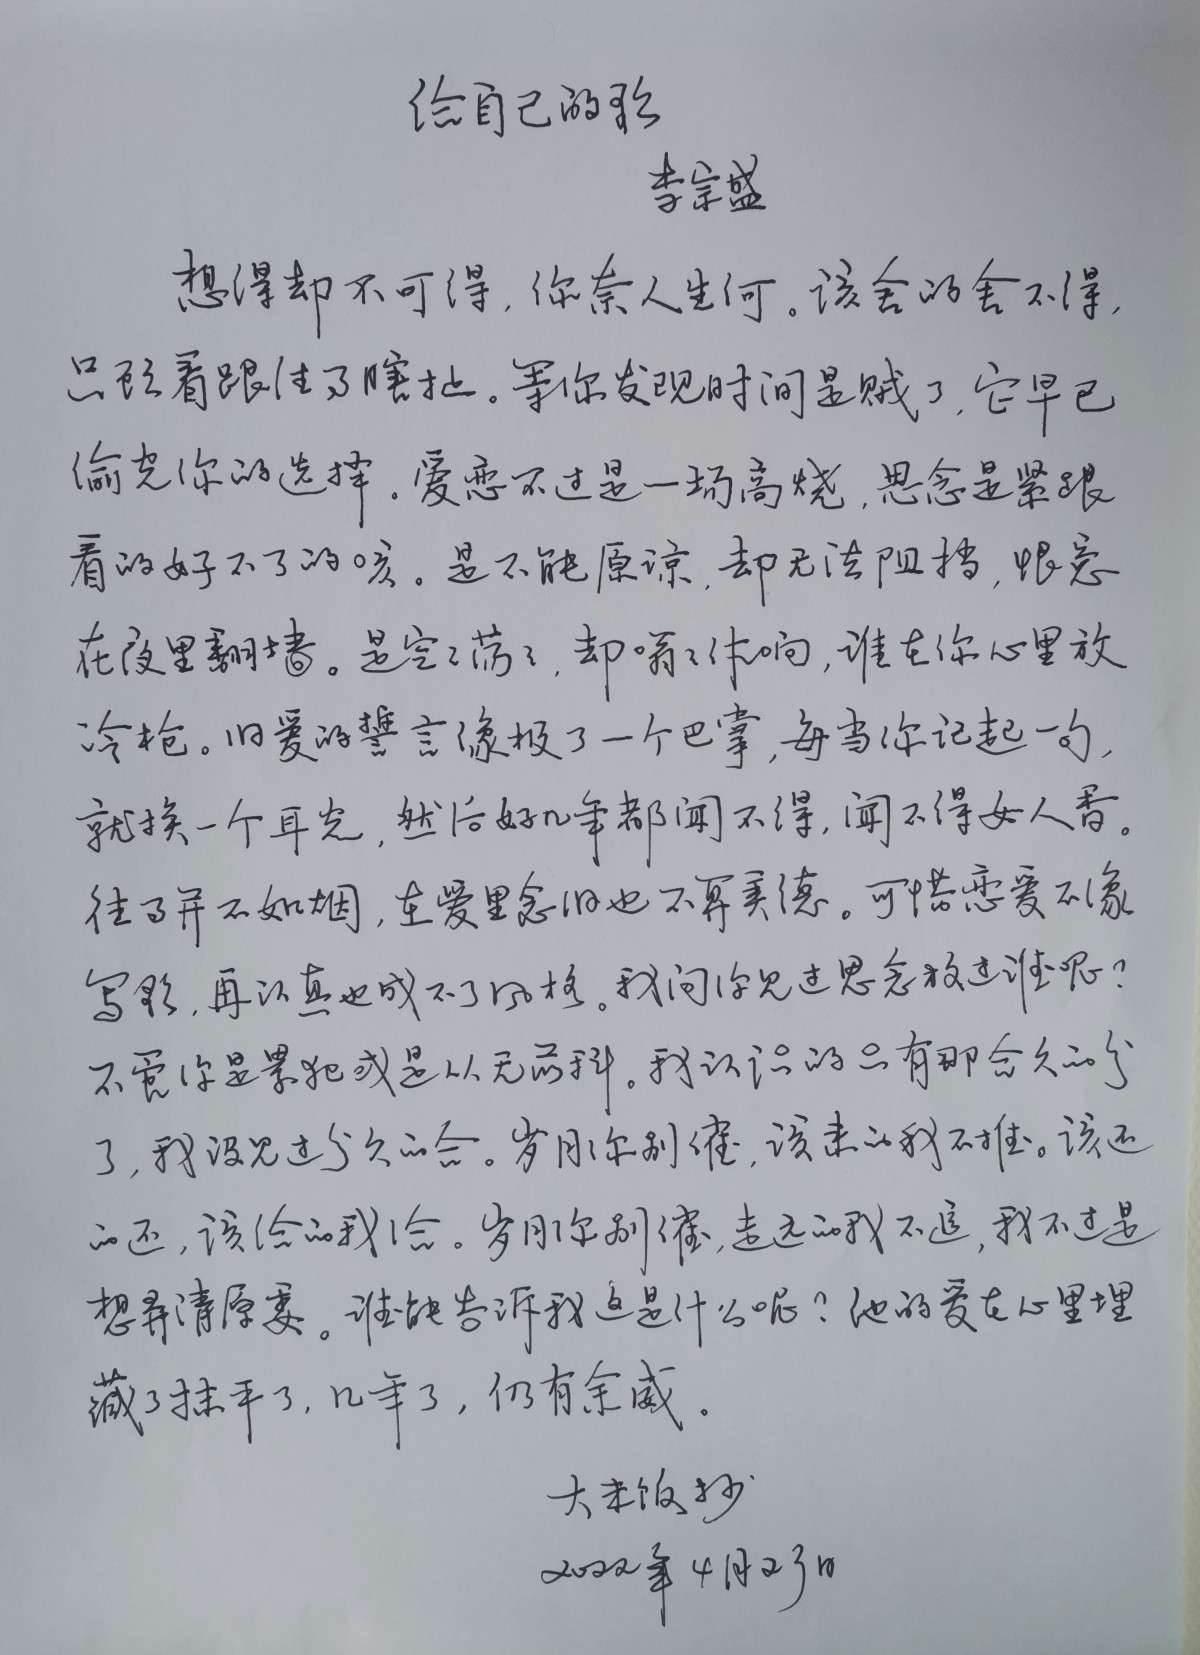 给自己的歌
李宗盛
想得却不可得，你奈人生何。该舍的舍不得，
只顾着跟往事瞎扯。等你发现时间是贼了，它早已
偷光你的选择。爱恋不过是一场高烧，思念是紧跟
着的好不了的咳。是不能原谅，却无法阻挡，恨意
在夜里翻墙。是空〻荡〻，却嗡〻作响，谁在你心里放
冷枪。旧爱的誓言像极了一个巴掌，每当你记起一句，
就挨一个耳光，然后好几年都闻不得，闻不得女人香。
往事并不如烟，在爱里念旧也不算美德。可惜恋爱不像
写歌，再认真也成不了风格。我问你见过思念放过谁呢？
不管你是累犯或是从无前科。我认识的只有那合久的分
了，我没见过分久的合。岁月你别催，该来的我不推。该还
的还，该给的我给。岁月你别催，走远的我不追，我不过是
想弄清原委。谁能告诉我这是什么呢？他的爱在心里埋
藏了抹平了，几年了，仍有余威。
大米饭抄
2022年4月23日